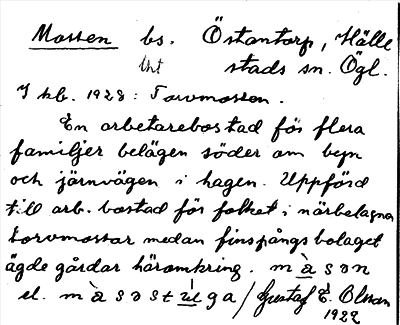 Mossen bs. Östantorp, Hälle
lht stads sn. Ögl.
I kb. 1928: Torvmossen.
En arbetarebostad för flera
familjer belägen söder om byn
och järnvägen i hagen. Uppförd
till arb. bostad för folket i närbelagna
torvmossar medan finspångs bolaget
ägde gårdar häromkring. m à s ɔ n
el. m à s ɔ s t ù g a / Gustaf E. Olman
1922